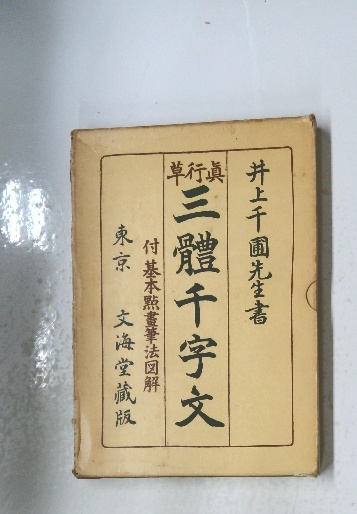 井上千圃先生書
眞行草
三體千字文
付 基本點畫筆法図解
東京 文海堂藏版